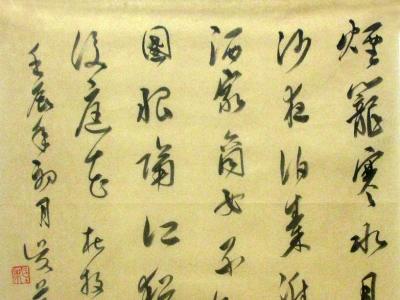 烟笼寒水月
沙夜泊秦淮
酒家商女不
国恨隔江犹
後庭花 杜牧
壬辰年初月